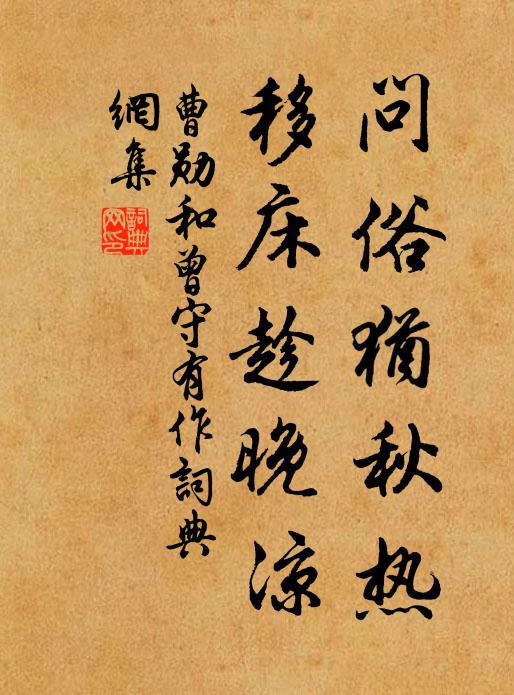 问俗犹秋热
移床趁晚凉
曹勋和曾守有作词典
網集
詞典網印